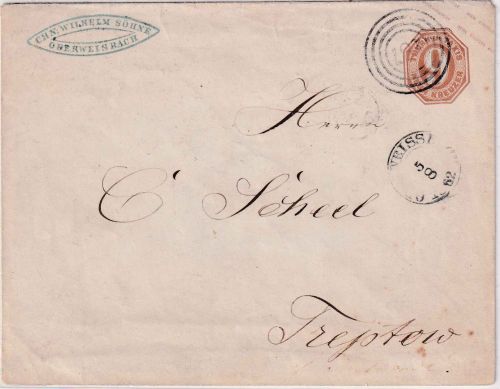 CHN. WILHELM SÖHNE
OBERWEISBACH
KREUZER
Herrn
C Scheel
5
8
62
Treptow